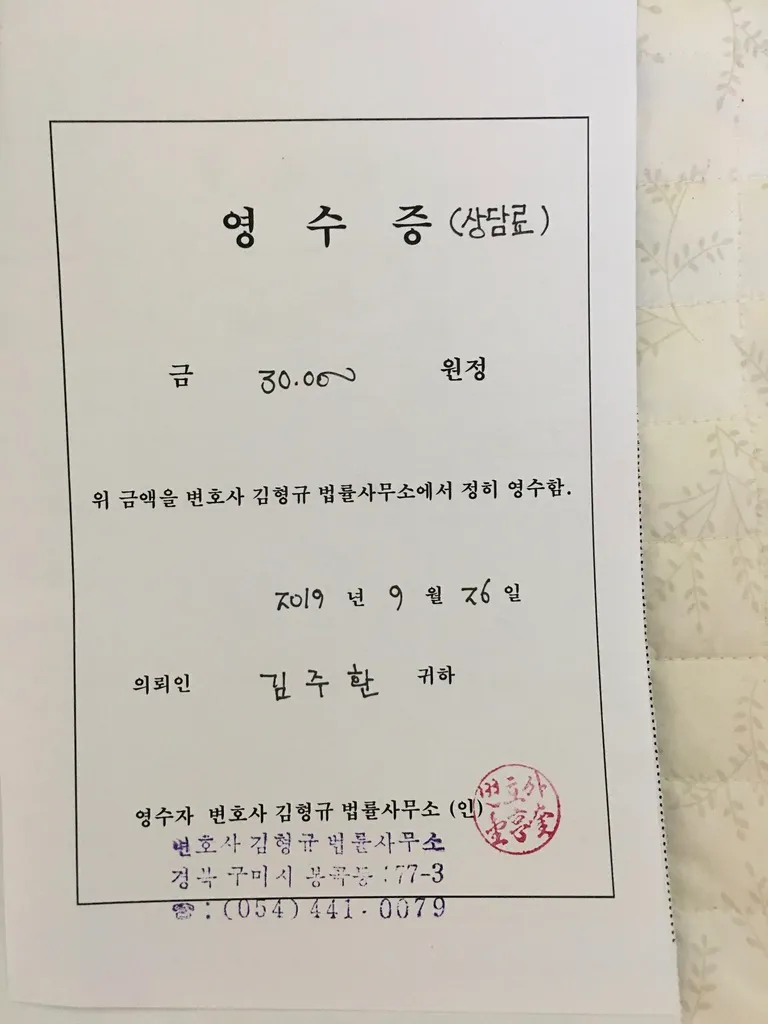 영 수 증 (상담료)
금 30.000 원정
위 금액을 변호사 김형규 법률사무소에서 정히 영수함.
2019 년 9 월 26 일
의뢰인 김주환 귀하
영수자 변호사 김형규 법률사무소 (인)
변호사 김형규 법률사무소
경북 구미시 봉곡동 177-3
☎ : (054) 441 - 0079